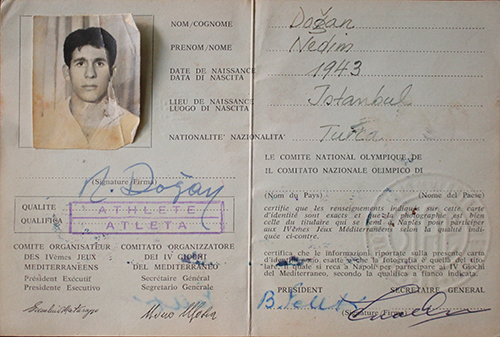 NOM/COGNOME Doğan
PRENOM/NOME Nedim
DATE DE NAISSANCE
DATA DI NASCITA 1943
LIEU DE NAISSANCE
LUOGO DI NASCITA Istanbul
NATIONALITÉ NAZIONALITA' Turca
(Signature Firma) N. Doğan
QUALITE
QUALIFICA
ATHLÈTE
ATLETA
COMITE ORGANISATEUR
DES IVèmes JEUX
MEDITERRANEENS
Président Exécutif
Presidente Esecutivo
COMITATO ORGANIZZATORE
DEI IV GIOCHI
DEL MEDITERRANEO
Secrétaire Général
Segretario Generale
LE COMITE NATIONAL OLYMPIQUE DE
IL COMITATO NAZIONALE OLIMPICO DI
(Nom du Pays) (Nome del Paese)
certifie que les renseignements indiqués sur cette carte
d'identité sont exacts et que la photographie est bien
celle du titulaire qui se rend à Naples pour participer
aux IVèmes Jeux Méditerranéens selon la qualité indi-
quée ci-contre.
certifica che le informazioni riportate sulla presente carta
d'identità sono esatte e che la fotografia è quella del tito-
lare, il quale si reca a Napoli per partecipare ai IV Giochi
del Mediterraneo, secondo la qualifica a fianco indicata.
PRESIDENT SECRETAIRE GENERAL
(Signature Firma)